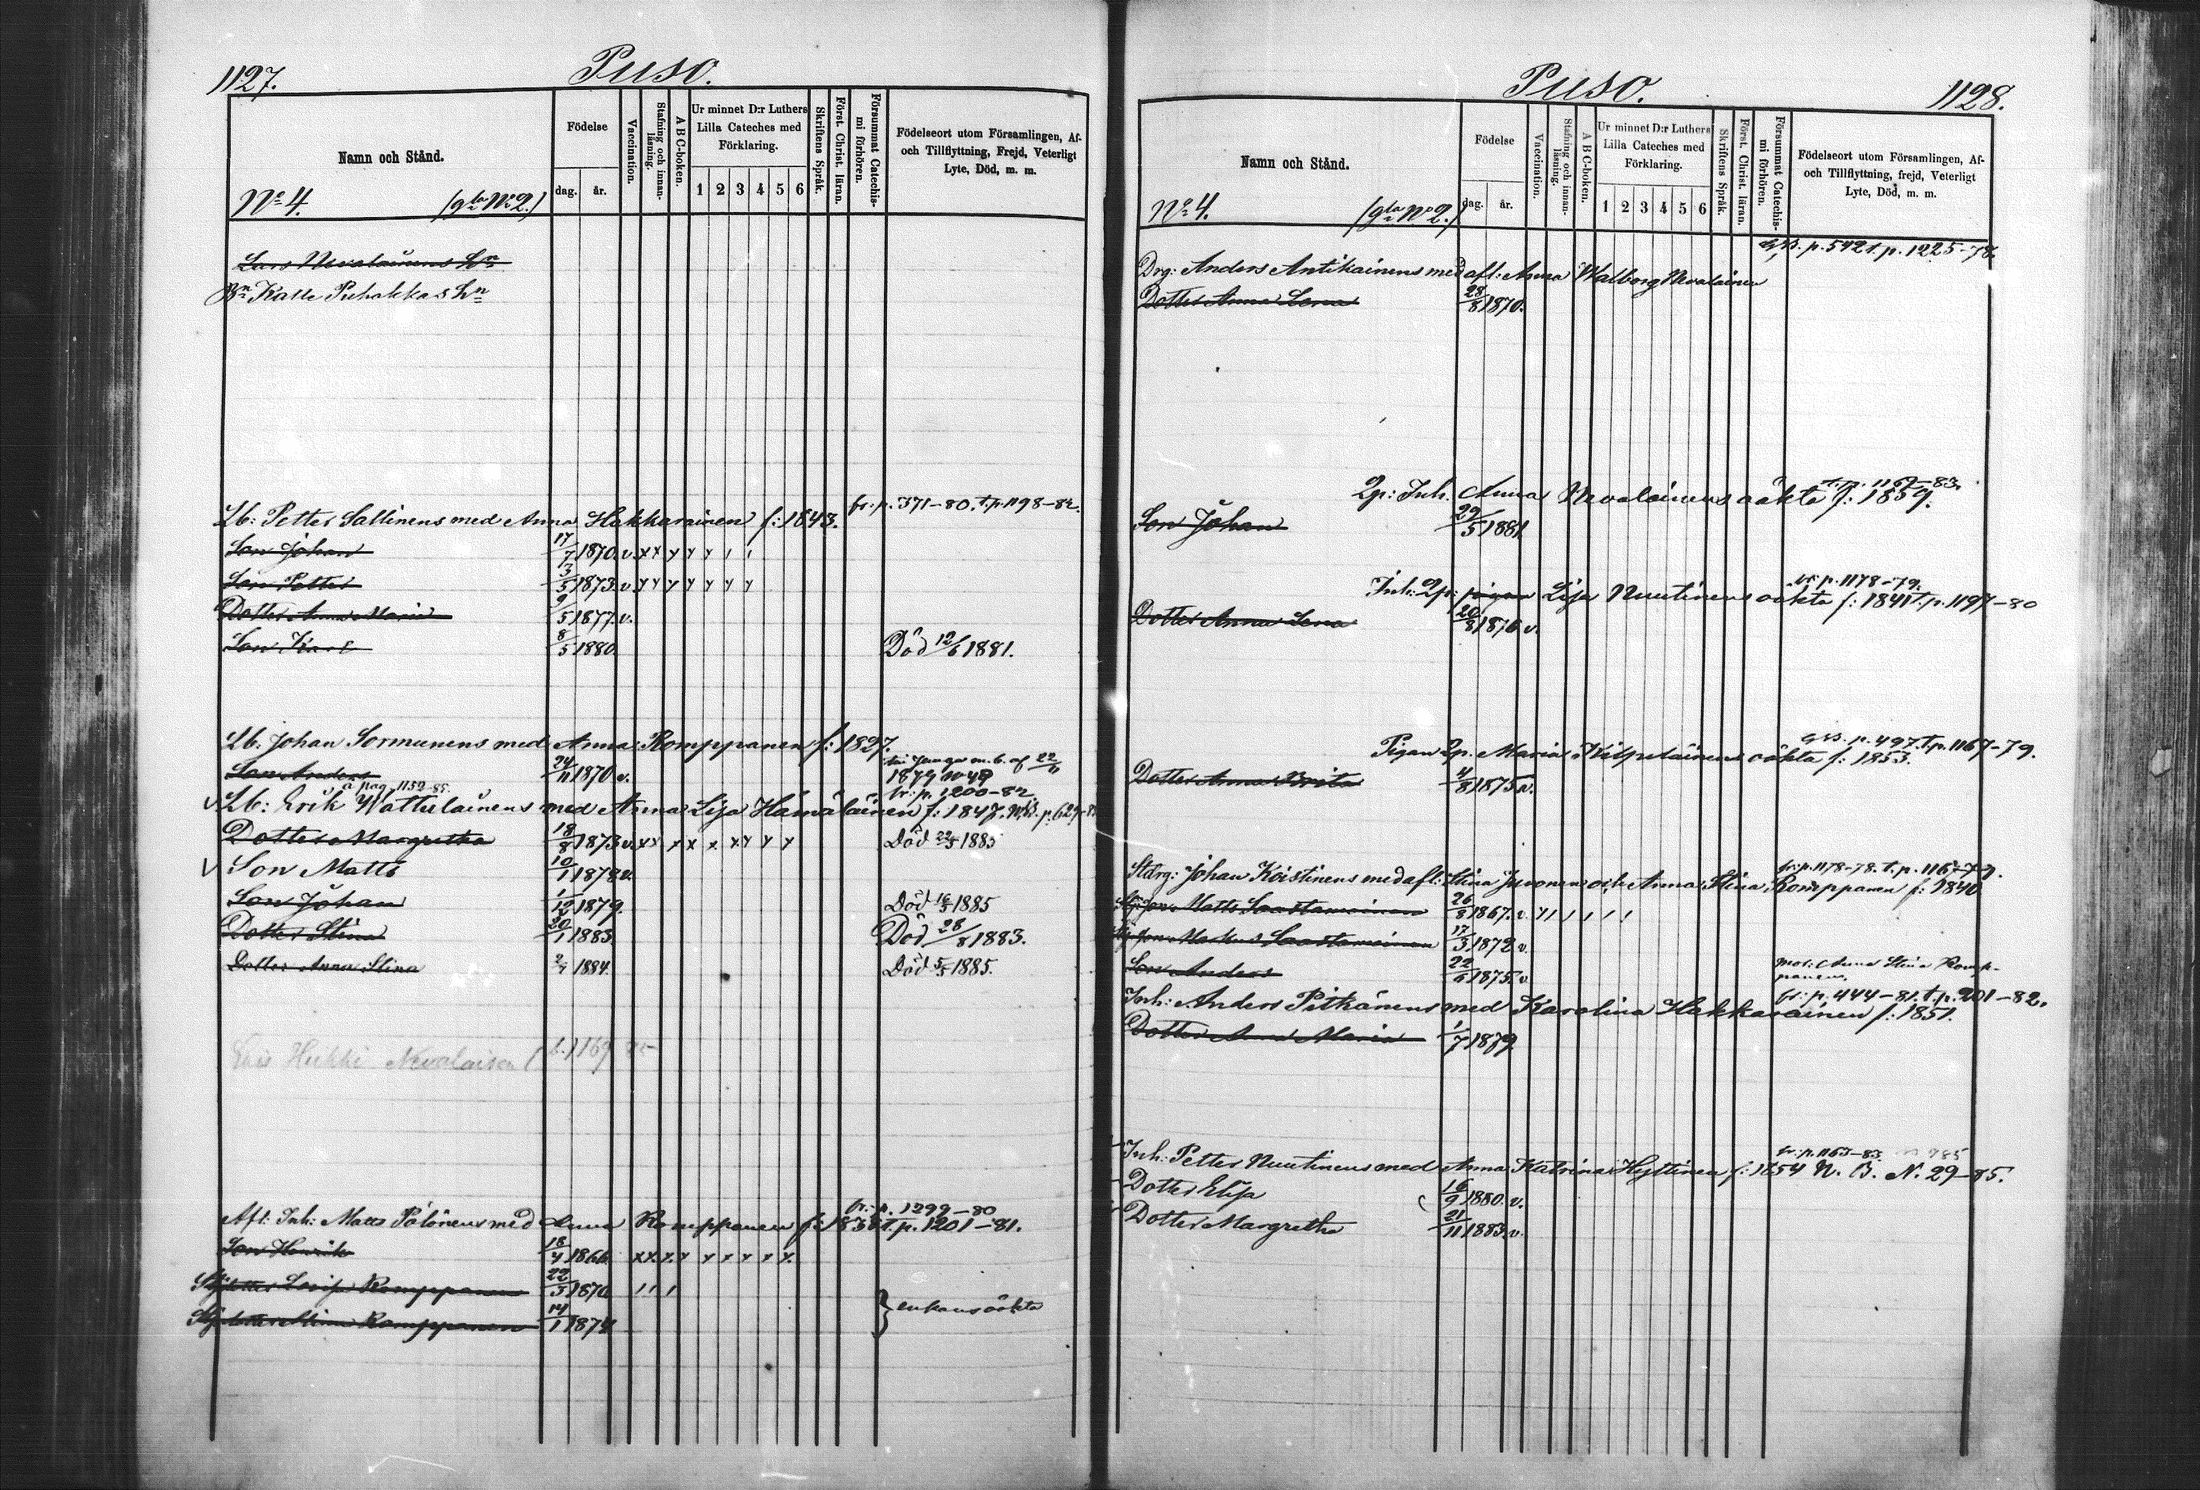 1127.
Puso.
Namn och Stånd.
Födelse
dag. år.
Vaccination.
Stafning och innanläsning.
A B C-boken.
Ur minnet D:r Luthers Lilla Cateches med Förklaring.
1 2 3 4 5 6
Skriftens Språk.
Först. Christ. läran.
Försummat Catechismi förhören.
Födelseort utom Församlingen, Af-
och Tillflyttning, Frejd, Veterligt
Lyte, Död, m. m.
No 4. (gla No 2.)
Lars Nevalainens hn
Bn Kalle Puhakkas hn
fr. p. 371-80. t. p. 1198-82.
Lb: Petter Sallinens med Anna Hakkarainen f: 1843.
Son Johan 17/7 1870. v. x x y y y ı ı
Son Petter 3/5 1873. v. y y y y y y y
Dotter Anna Maria 9/5 1877. v.
Son Karl 8/5 1880 Död 12/6 1881.
Lb. Johan Sormunens med Anna Romppanen f: 1827.
Son Anders 24/11 1870 v. 1879 No 49
å pag. 1152-85. fr. p. 1200-82
Lb: Erik Wattulainens med Anna Lisa Hämäläinen f: 1847.
Dotter Margretha 18/8 1873 v. x x x x x x y y Död 1885
Son Matts 10/1 1878 v.
Son Johan 1/12 1879. Död 1885
Dotter Stina 20/1 1883 Död 28/8 1883.
Dotter Anna Stina 1884. Död 5/5 1885.
Heikki Nevalainen
fr. p. 1299-80
Aft: Inh: Matts Pölönens med Anna Romppanen f: 1838 t. p. 1201-81.
Son Henrik 18/4 1866 x x x y y y y y y
Romppanen 22/3 1870 ı ı ı
Stina Romppanen 14/1 1874 } enkans oäkta
Puso.
1128.
Namn och Stånd.
Födelse
dag. år.
Vaccination.
Stafning och innanläsning.
A B C-boken.
Ur minnet D:r Luthers Lilla Cateches med Förklaring.
1 2 3 4 5 6
Skriftens Språk.
Först. Christ. läran.
Försummat Catechismi förhören.
Födelseort utom Församlingen, Af-
och Tillflyttning, frejd, Veterligt
Lyte, Död, m. m.
No 4. (gla No 2.)
p. 542 t. p. 1225-78.
Drg: Anders Antikainens med afl: Anna Walborg Nevalainen
Dotter Anna Lena 28/8 1870.
t. p. 1162-83.
Qp: Inh. Anna Nevalainens oäkta f: 1859.
Son Johan 29/5 1881.
fr. p. 1178-79.
Inh: Qp: pigan Lisa Nuutinens oäkta f: 1841 t. p. 1197-80
Dotter Anna Lena 20/8 1876 v.
p. 497. t. p. 1167-79.
Pigan Qp. Maria Kilpeläinens oäkta f: 1853.
Dotter Anna Brita 4/8 1875 v.
fr. p. 1178-78. t. p. 1167-79.
Stdrg: Johan Koistinens med afl: Stina Juvonen och Anna Stina Romppanen f: 1840.
Matts Saastamoinen 26/8 1867. v. y ı ı ı ı ı
Markus Saastamoinen 17/3 1872 v.
Son Anders 22/6 1875. v. mod: Anna Stina Romp-
panen.
fr: p. 444-81. t. p. 201-82.
Inh: Anders Pitkänens med Karolina Hakkarainen f: 1851.
Dotter Anna Maria 1/7 1879.
fr: p. 1163-83
Inh: Petter Nuutinens med Anna Katrina Hyttinen f: 1854 N. B. N. 29-85.
Dotter Elisa 16/9 1880. v.
Dotter Margretha 21/11 1883. v.